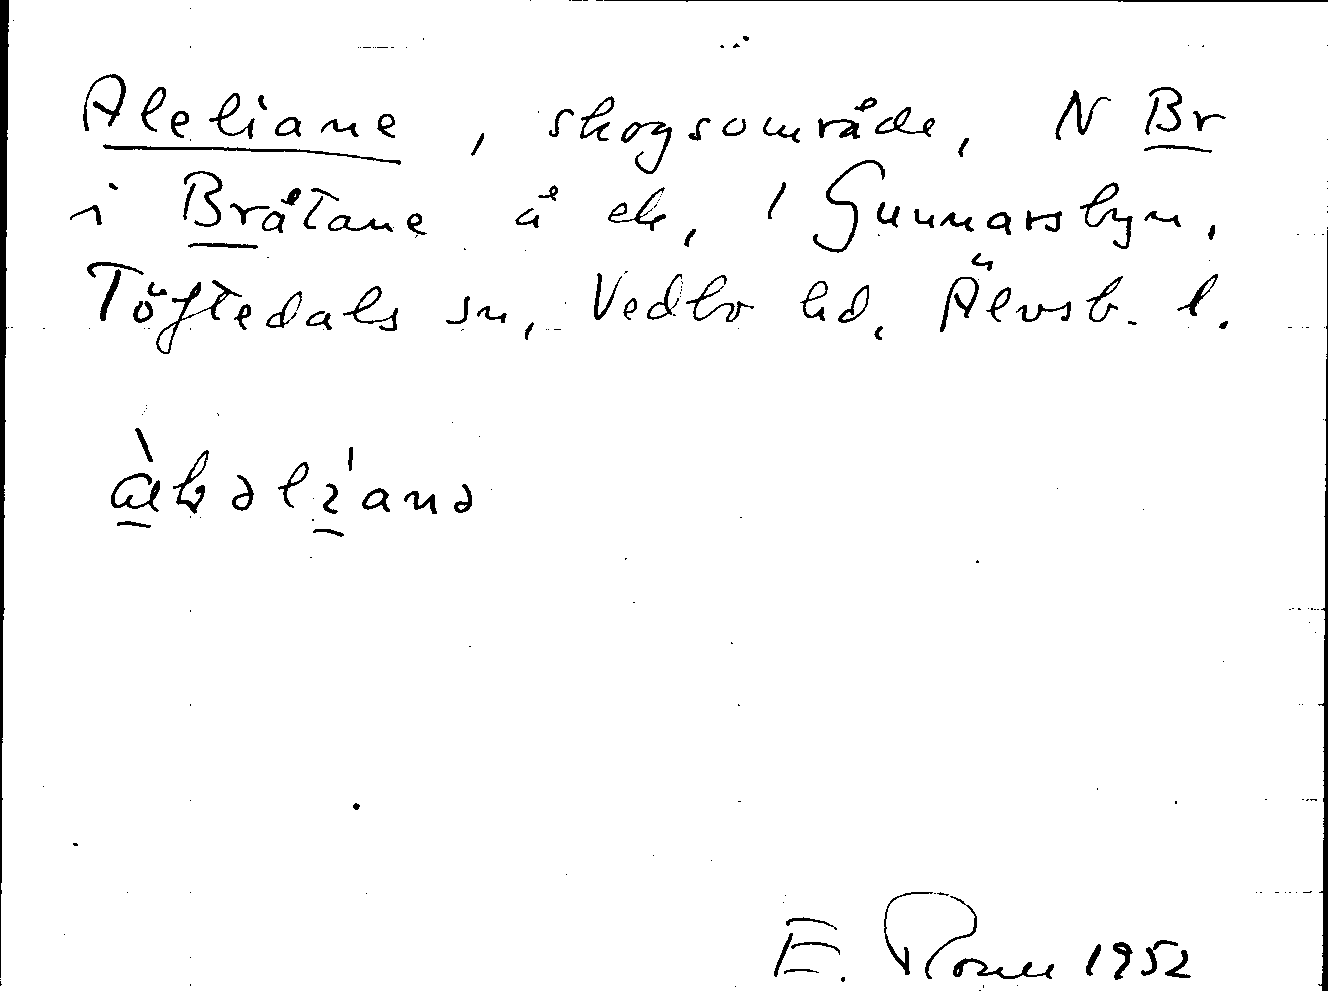 Aleliane, skogsområde, N Br
i Bråtane å ek, 1 Gunnarsbyn,
Töftedals sn, Vedbo hd, Älvsb. l.
E. Rosell 1952